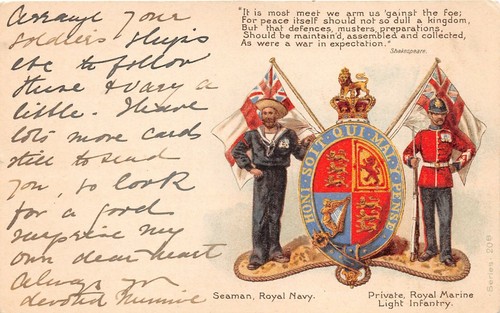 Arrange your
soldiers ships
etc to follow
these & vary a
little. I have
lots more cards
still to send
you, so look
for a good
surprise my
own dear heart
Always yr
devoted Mummie
"It is most meet we arm us 'gainst the foe;
For peace itself should not so dull a kingdom,
But that defences, musters, preparations,
Should be maintain'd, assembled and collected,
As were a war in expectation."
Shakespeare.
HONI · SOIT · QUI · MAL · Y · PENSE
Seaman, Royal Navy.
Private, Royal Marine
Light Infantry.
Series. 209